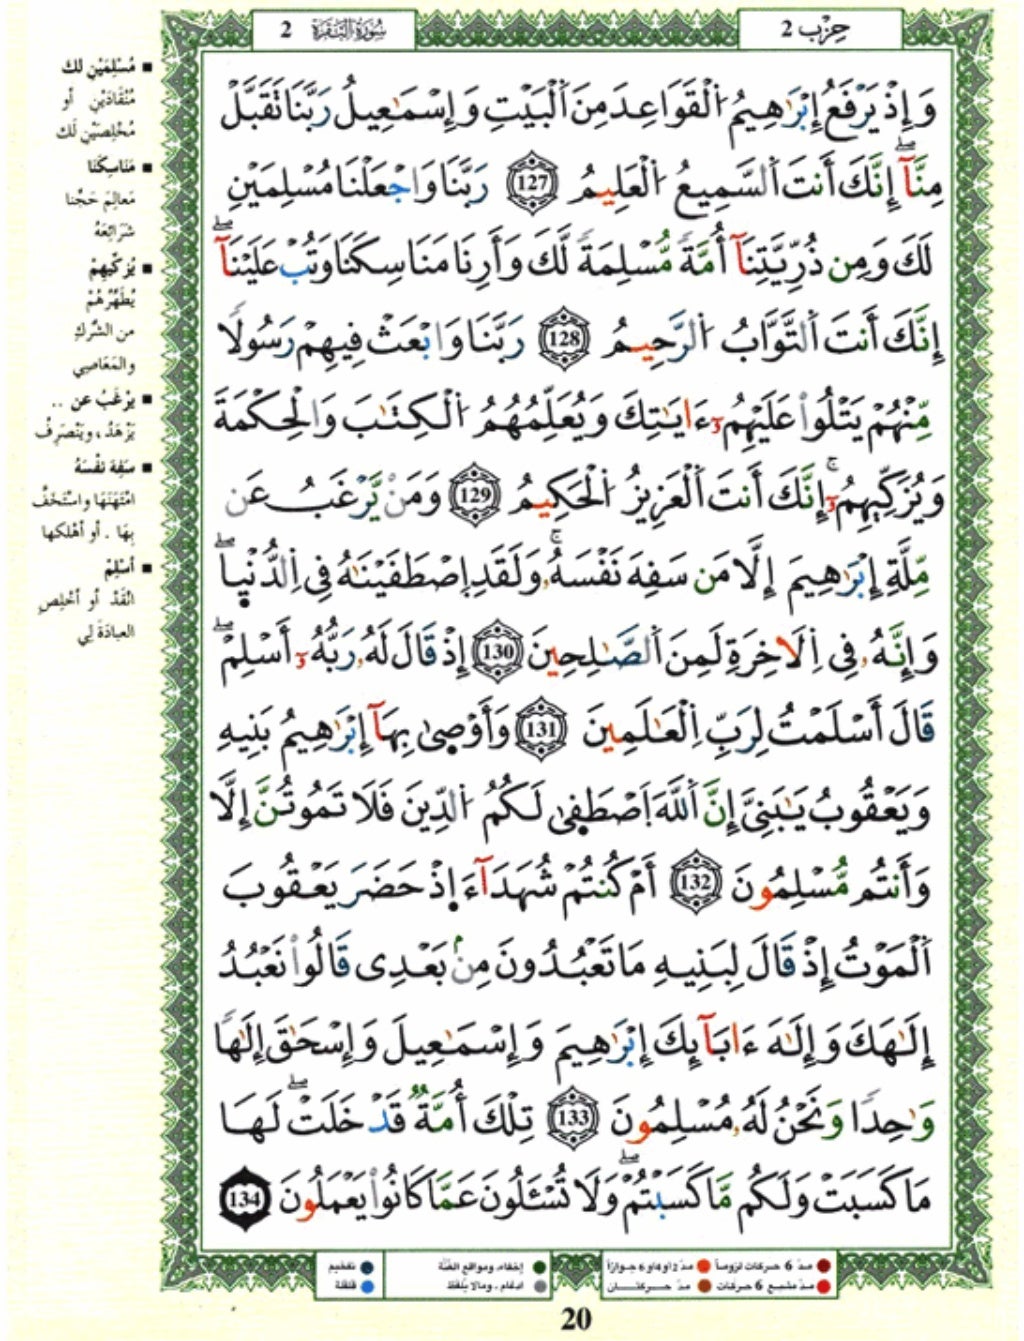 حِزْب 2
سُورَةُ البَقَرَة 2
وَإِذْ يَرْفَعُ إِبْرَٰهِيمُ اُ۬لْقَوَاعِدَ مِنَ اَ۬لْبَيْتِ وَإِسْمَٰعِيلُ رَبَّنَا تَقَبَّلْ
مِنَّآ إِنَّكَ أَنتَ اَ۬لسَّمِيعُ اُ۬لْعَلِيمُ 127 رَبَّنَا وَاجْعَلْنَا مُسْلِمَيْنِ
لَكَ وَمِن ذُرِّيَّتِنَآ أُمَّةٗ مُّسْلِمَةٗ لَّكَ وَأَرِنَا مَنَاسِكَنَا وَتُبْ عَلَيْنَآ
إِنَّكَ أَنتَ اَ۬لتَّوَّابُ اُ۬لرَّحِيمُ 128 رَبَّنَا وَابْعَثْ فِيهِمْ رَسُولٗا
مِّنْهُمْ يَتْلُوا۟ عَلَيْهِمُۥٓ ءَايَٰتِكَ وَيُعَلِّمُهُمُ اُ۬لْكِتَٰبَ وَالْحِكْمَةَ
وَيُزَكِّيهِمُۥٓ إِنَّكَ أَنتَ اَ۬لْعَزِيزُ اُ۬لْحَكِيمُ 129 وَمَنْ يَّرْغَبُ عَن
مِّلَّةِ إِبْرَٰهِيمَ إِلَّا مَن سَفِهَ نَفْسَهُۥ وَلَقَدِ اِ۪صْطَفَيْنَٰهُ فِي اِ۬لدُّنْي۪ا
وَإِنَّهُۥ فِي اِ۬لَاخِرَةِ لَمِنَ اَ۬لصَّٰلِحِينَ 130 إِذْ قَالَ لَهُۥ رَبُّهُۥٓ أَسْلِمْ
قَالَ أَسْلَمْتُ لِرَبِّ اِ۬لْعَٰلَمِينَ 131 وَأَوْص۪ىٰ بِهَآ إِبْرَٰهِيمُ بَنِيهِ
وَيَعْقُوبُ يَٰبَنِيَّ إِنَّ اَ۬للَّهَ اَ۪صْطَف۪ىٰ لَكُمُ اُ۬لدِّينَ فَلَا تَمُوتُنَّ إِلَّا
وَأَنتُم مُّسْلِمُونَ 132 أَمْ كُنتُمْ شُهَدَآءَ اِ۪ذْ حَضَرَ يَعْقُوبَ
اَ۬لْمَوْتُ إِذْ قَالَ لِبَنِيهِ مَا تَعْبُدُونَ مِنۢ بَعْدِي قَالُوا۟ نَعْبُدُ
إِلَٰهَكَ وَإِلَٰهَ ءَابَآئِكَ إِبْرَٰهِيمَ وَإِسْمَٰعِيلَ وَإِسْحَٰقَ إِلَٰهٗا
وَٰحِدٗا وَنَحْنُ لَهُۥ مُسْلِمُونَ 133 تِلْكَ أُمَّةٞ قَدْ خَلَتْ لَهَا
مَا كَسَبَتْ وَلَكُم مَّا كَسَبْتُمْ وَلَا تُسْـَٔلُونَ عَمَّا كَانُوا۟ يَعْمَلُونَ 134
■ مُسْلِمَيْنِ لك
مُنْقَادَيْنِ أو
مُخْلِصَيْنِ لَك
■ مَنَاسِكَنَا
مَعالِمَ حَجِّنا
شَرَائِعَهُ
■ يُزَكِّيهِمْ
يُطَهِّرُهُمْ
من الشِّركِ
والمَعَاصِي
■ يرْغَبُ عن ..
يَزْهَدُ ، ويَنْصَرِفُ
■ سَفِهَ نفْسَهُ
امْتَهَنَهَا واسْتَخَفَّ
بِهَا . أو أهْلكها
■ أسْلِمْ
انْقَدْ أو أخْلِصِ
العبادَةَ لِي
مدّ 6 حركات لزوماً
مدّ 2 أو 4 أو 6 جوازاً
إخفاء، ومواقع الغُنَّة
تفخيم
مدّ مشبع 6 حركات
مدّ حركتان
ادغام ، ومالا يُلفظ
قلقلة
20